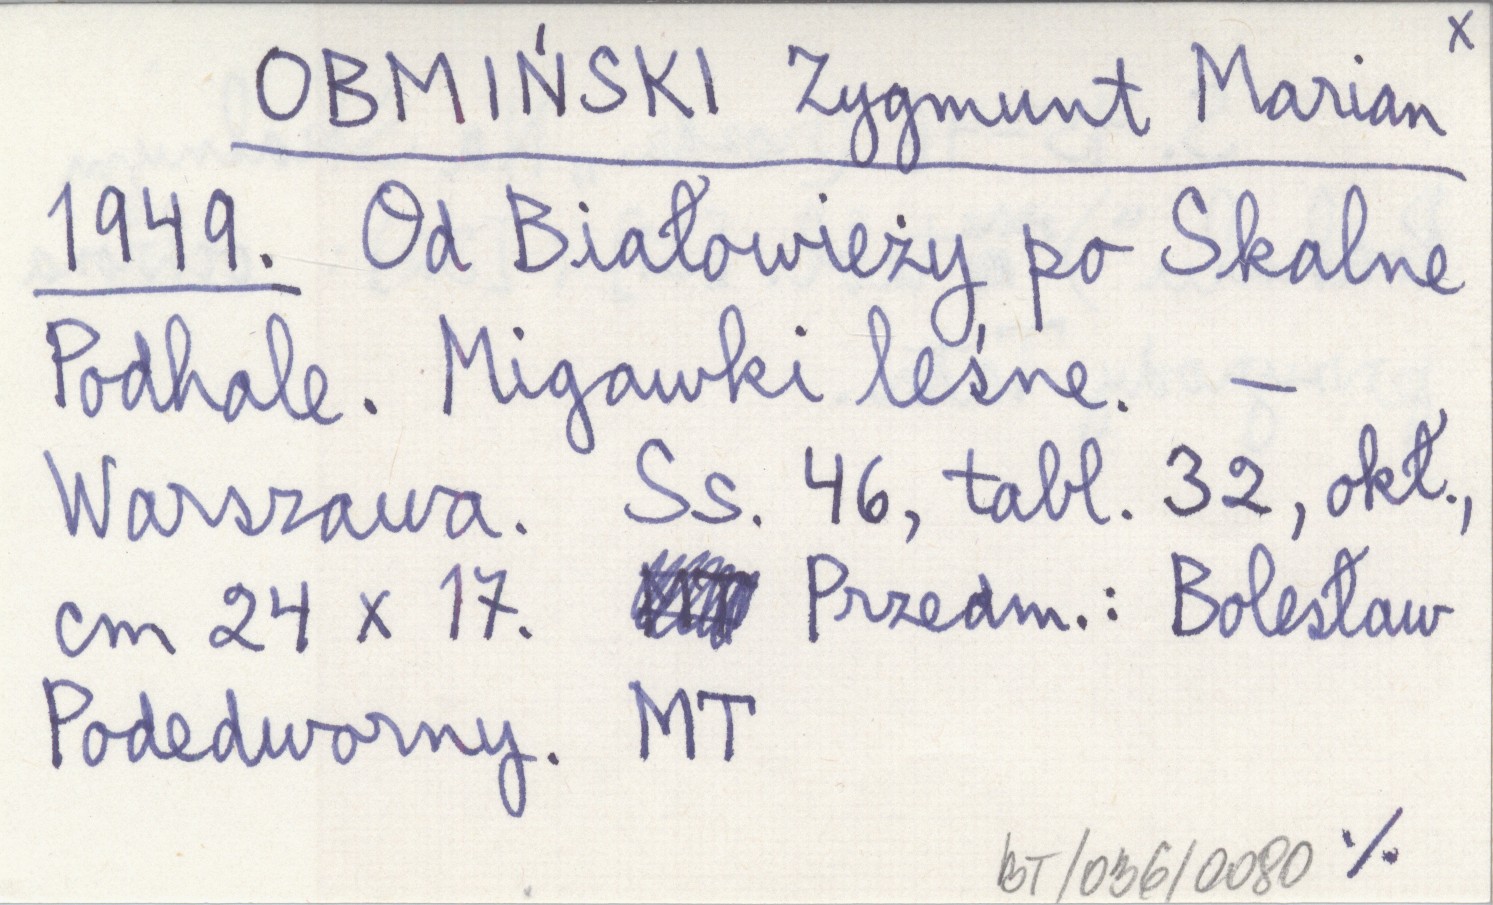 x
OBMIŃSKI Zygmunt Marian
1949. Od Białowieży po Skalne
Podhale. Migawki leśne. –
Warszawa. Ss. 46, tabl. 32, okł.,
cm 24 x 17. Przedm.: Bolesław
Podedworny. MT
BT/036/0080 ./.